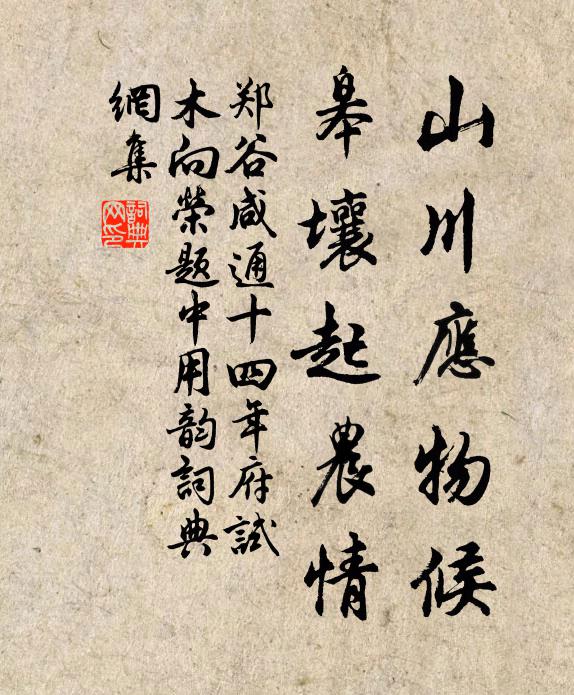 山川應物候
皋壤起農情
郑谷咸通十四年府試
木向榮题中用韵詞典
網集
詞典
网印